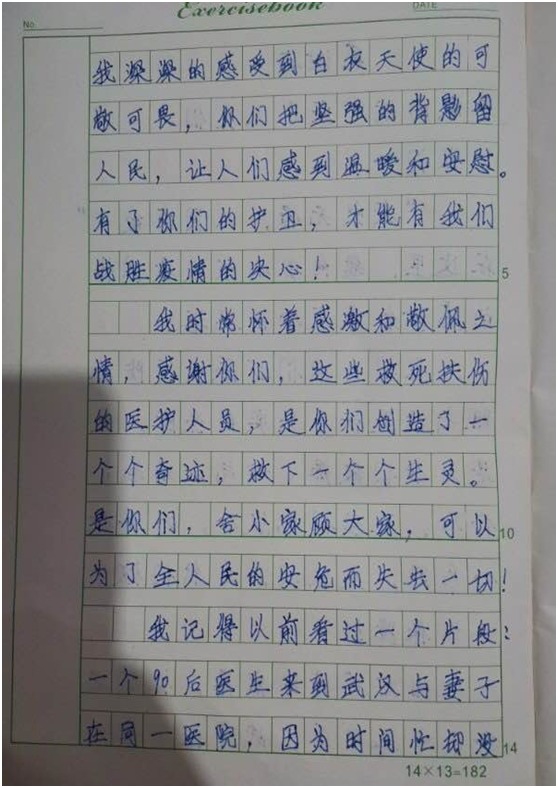 Exercisebook
No.
DATE
我深深的感受到白衣天使的可
敬可畏，你们把坚强的背影留
人民，让人们感到温暖和安慰。
有了你们的护卫，才能有我们
战胜疫情的决心！
5
我时常怀着感激和敬佩之
情，感谢你们，这些救死扶伤
的医护人员，是你们创造了一
个个奇迹，救下一个个生灵。
是你们，舍小家顾大家，可以
10
为了全人民的安危而失去一切！
我记得以前看过一个片段：
一个90后医生来到武汉与妻子
在同一医院，因为时间忙都没
14
14×13=182